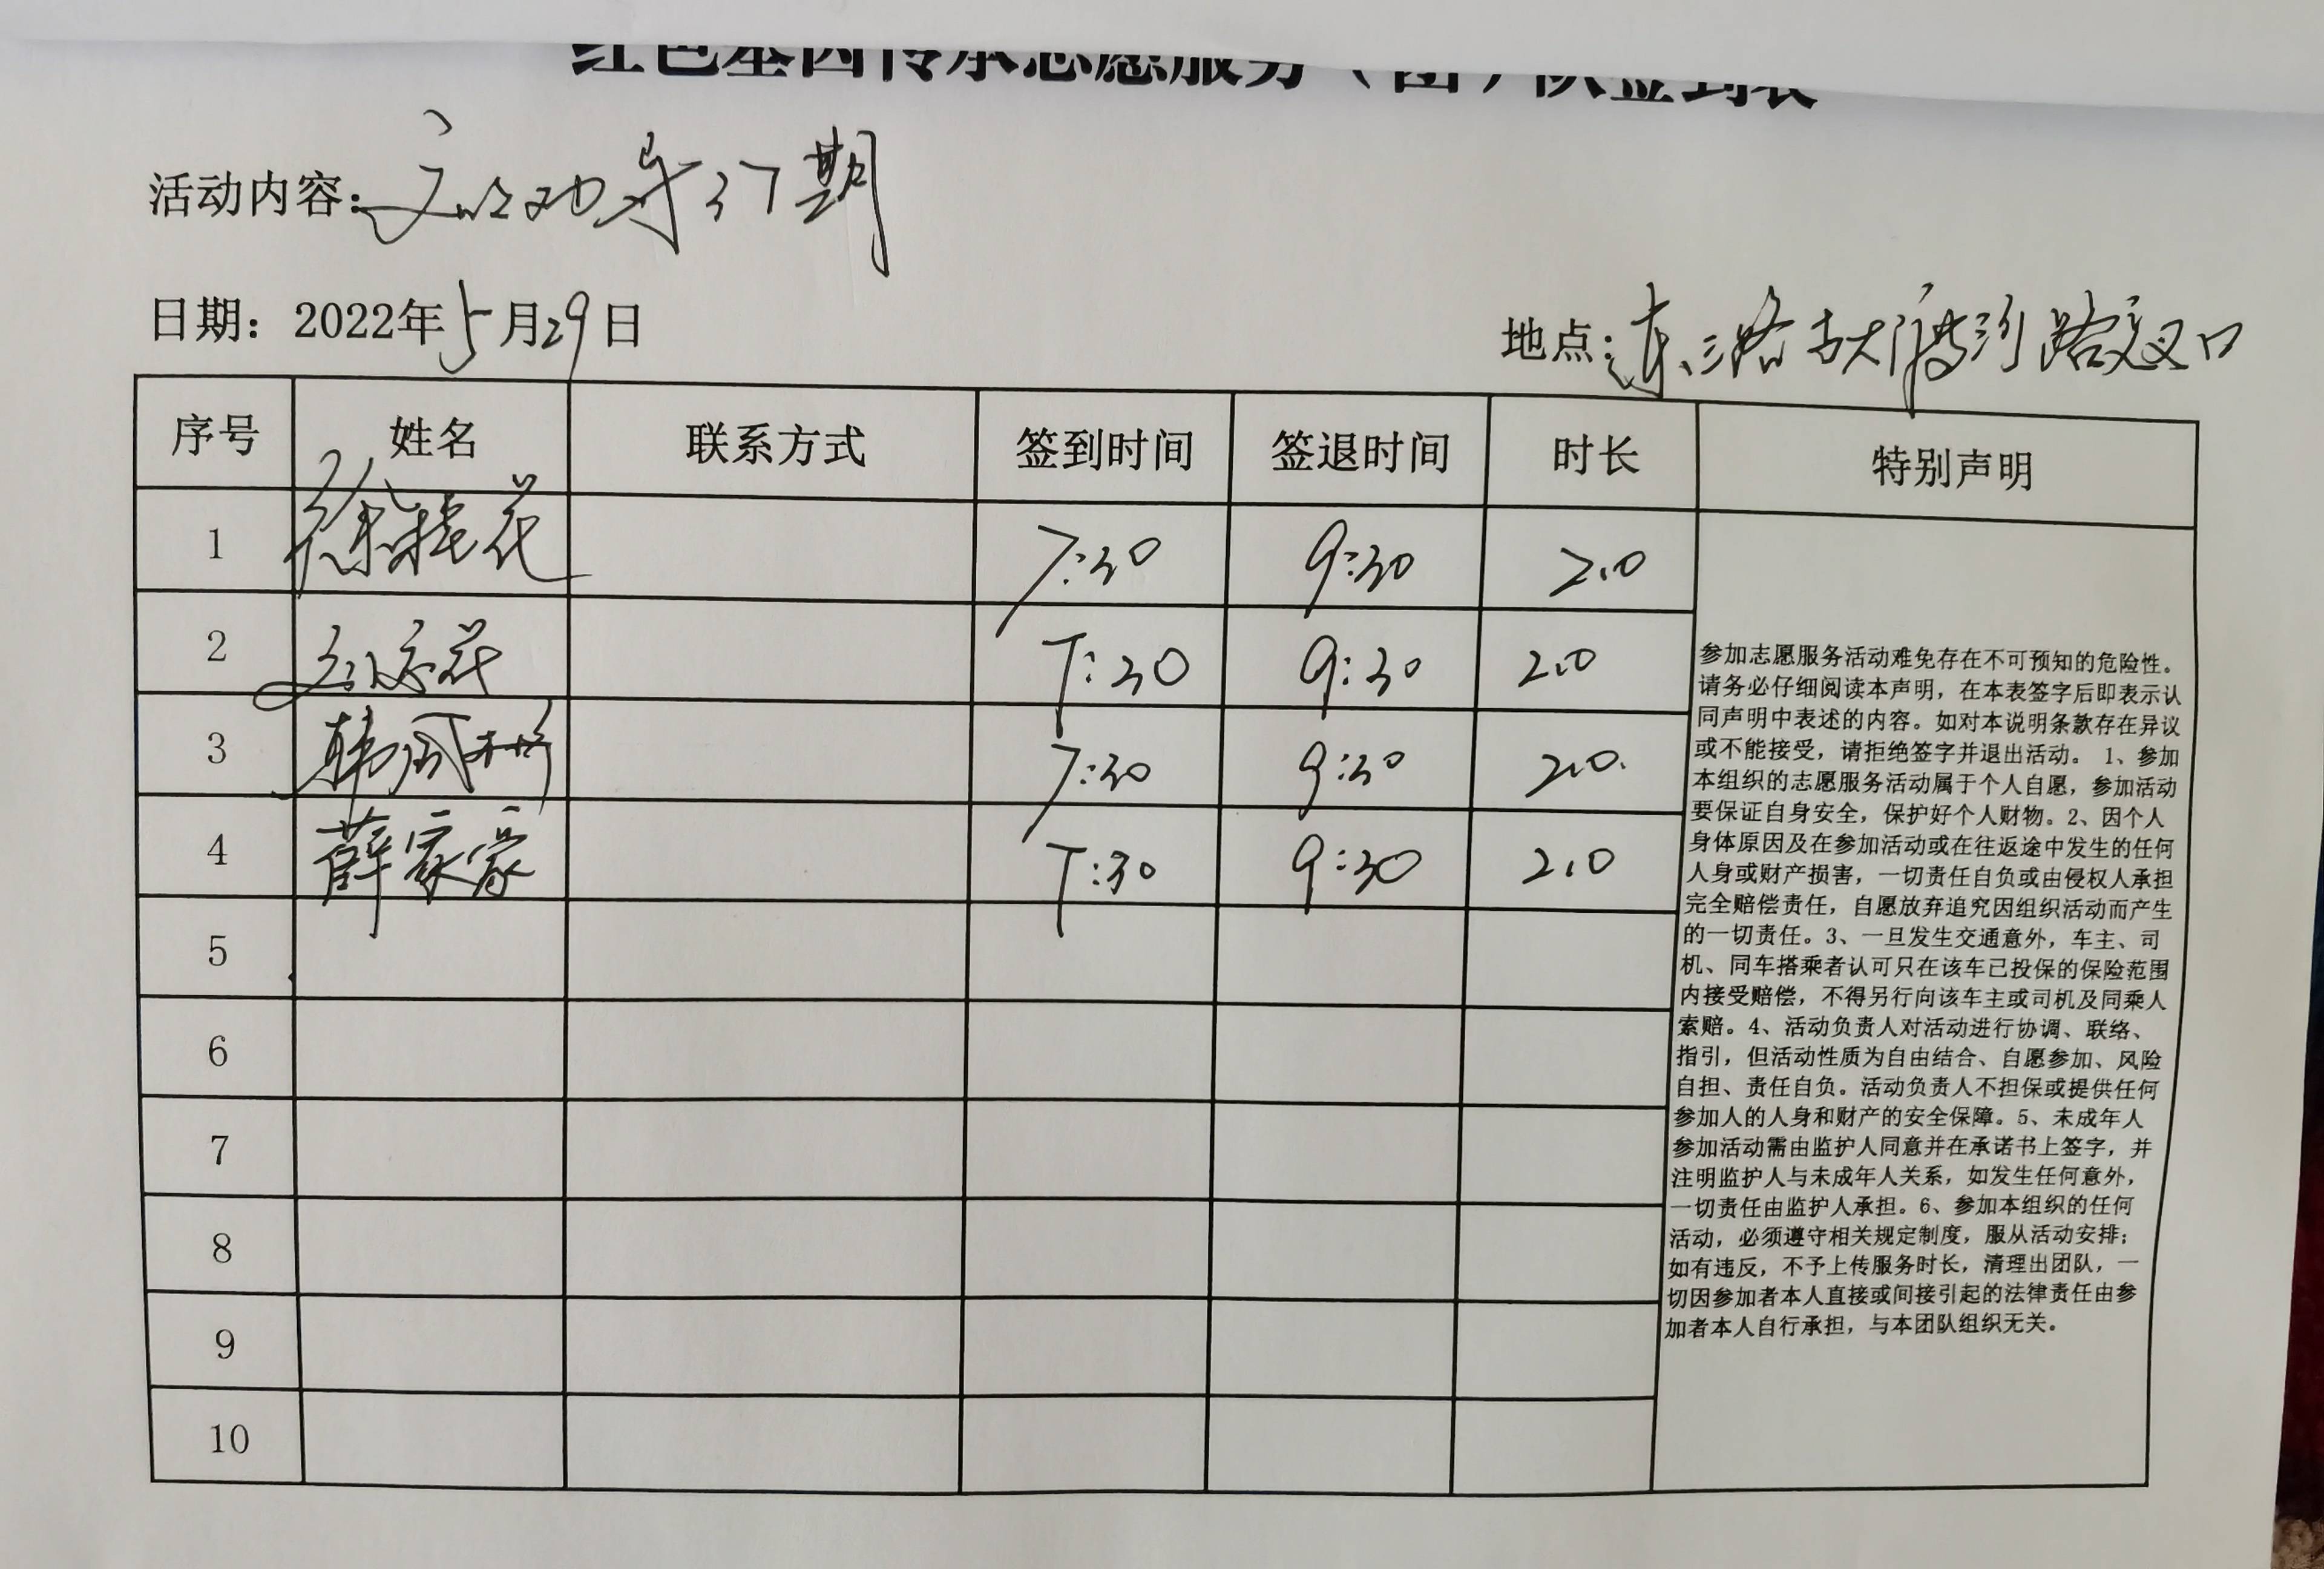 红色基因传承志愿服务（团）队签到表
活动内容: 文明劝导37期
日期: 2022年5月29日
地点: 东三路 路交叉口
序号 姓名 联系方式 签到时间 签退时间 时长 特别声明
1 徐桂花 7:30 9:30 2.0
2 7:30 9:30 2.0
3 韩凤彬 7:30 9:30 2.0.
4 薛家豪 7:30 9:30 2.0
5
6
7
8
9
10
参加志愿服务活动难免存在不可预知的危险性。
请务必仔细阅读本声明，在本表签字后即表示认
同声明中表述的内容。如对本说明条款存在异议
或不能接受，请拒绝签字并退出活动。 1、参加
本组织的志愿服务活动属于个人自愿，参加活动
要保证自身安全，保护好个人财物。2、因个人
身体原因及在参加活动或在往返途中发生的任何
人身或财产损害，一切责任自负或由侵权人承担
完全赔偿责任，自愿放弃追究因组织活动而产生
的一切责任。3、一旦发生交通意外，车主、司
机、同车搭乘者认可只在该车已投保的保险范围
内接受赔偿，不得另行向该车主或司机及同乘人
索赔。4、活动负责人对活动进行协调、联络、
指引，但活动性质为自由结合、自愿参加、风险
自担、责任自负。活动负责人不担保或提供任何
参加人的人身和财产的安全保障。5、未成年人
参加活动需由监护人同意并在承诺书上签字，并
注明监护人与未成年人关系，如发生任何意外，
一切责任由监护人承担。6、参加本组织的任何
活动，必须遵守相关规定制度，服从活动安排；
如有违反，不予上传服务时长，清理出团队，一
切因参加者本人直接或间接引起的法律责任由参
加者本人自行承担，与本团队组织无关。